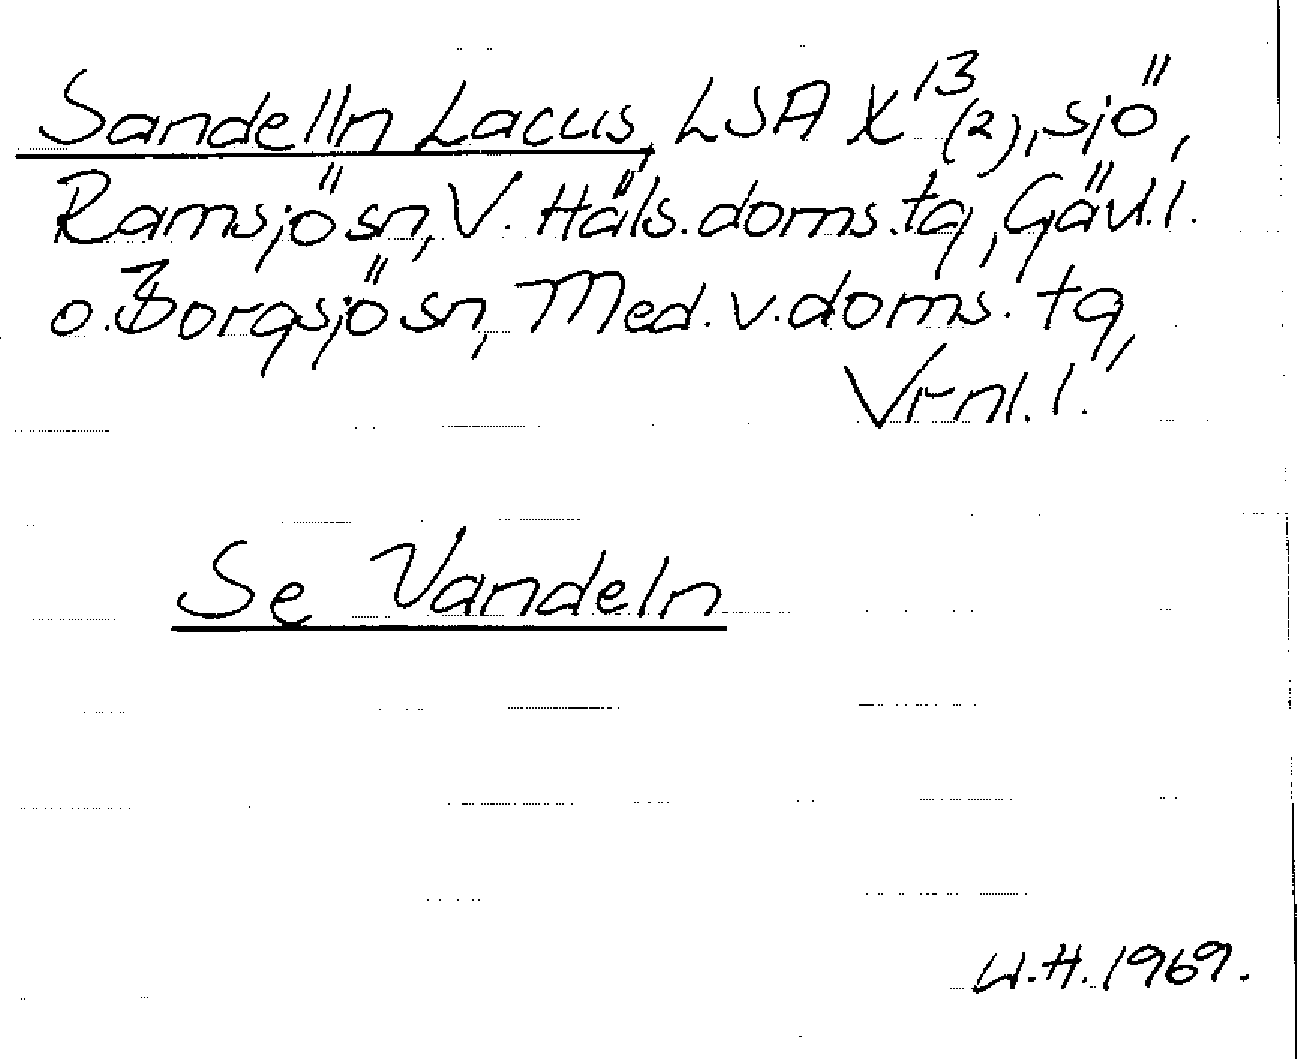 Sandelln Lacus, LSA X¹³(2), sjö,
Ramsjö sn, V. Häls. doms. tg, Gävl. l.
o. Borgsjö sn, Med. v. doms. tg,
Vrnl. l.
Se Vandeln
U.H. 1969.